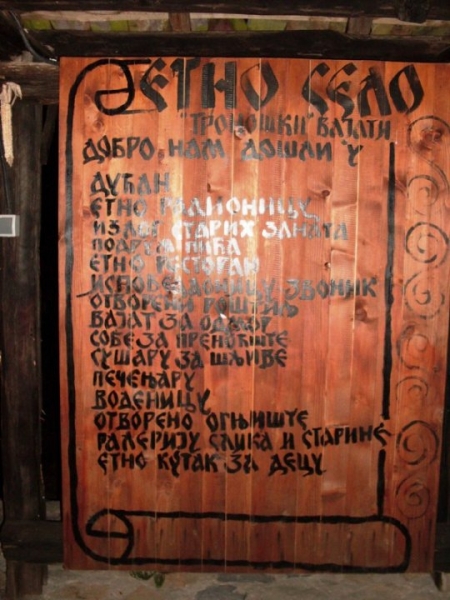 ЕТНО СЕЛО
"ТРОНОШКИ" ВАЈАТИ
ДОБРО НАМ ДОШЛИ У
ДУЋАН
ЕТНО РАДИОНИЦУ
ИЗЛОГ СТАРИХ ЗАНАТА
ПОДРУМ ПИЋА
ЕТНО РЕСТОРАН
ИСПОВЕДАОНИЦУ ЗВОНИК
ОТВОРЕНИ РОШТИЉ
ВАЈАТ ЗА ОДМОР
СОБЕ ЗА ПРЕНОЋИШТЕ
СУШАРУ ЗА ШЉИВЕ
ПЕЧЕЊАРУ
ВОДЕНИЦУ
ОТВОРЕНО ОГЊИШТЕ
ГАЛЕРИЈУ СЛИКА И СТАРИНЕ
ЕТНО КУТАК ЗА ДЕЦУ